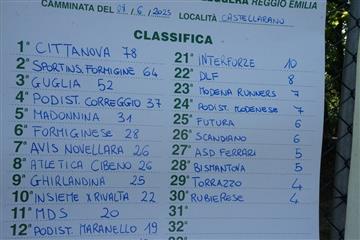 REGGIO EMILIA
CAMMINATA DEL 08/6/2025 LOCALITÀ CASTELLARANO
CLASSIFICA
1° CITTANOVA 78
2° SPORTINS. FORMIGINE 64
3° GUGLIA 52
4° PODIST. CORREGGIO 37
5° MADONNINA 31
6° FORMIGINESE 28
7° AVIS NOVELLARA 26
8° ATLETICA CIBENO 26
9° GHIRLANDINA 25
10° INSIEME X RIVALTA 22
11° MDS 20
12° PODIST. MARANELLO 19
21° INTERFORZE 10
22° DLF 8
23° MODENA RUNNERS 7
24° PODIST. MODENESE 7
25° FUTURA 6
26° SCANDIANO 6
27° ASD FERRARI 5
28° BISMANTOVA 5
29° TORRAZZO 4
30° RUBIERESE 4
31°